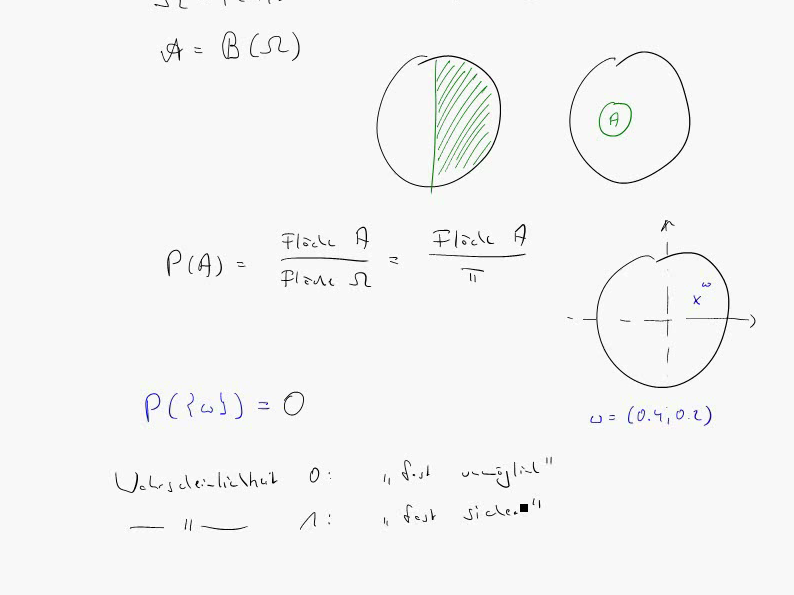 𝒜 = B(Ω)
A
P(A) = Fläche A / Fläche Ω = Fläche A / π
ω
x
P({ω}) = 0
ω = (0.4; 0.2)
Wahrscheinlichkeit 0: „fast unmöglich"
— " — 1: „fast sicher"